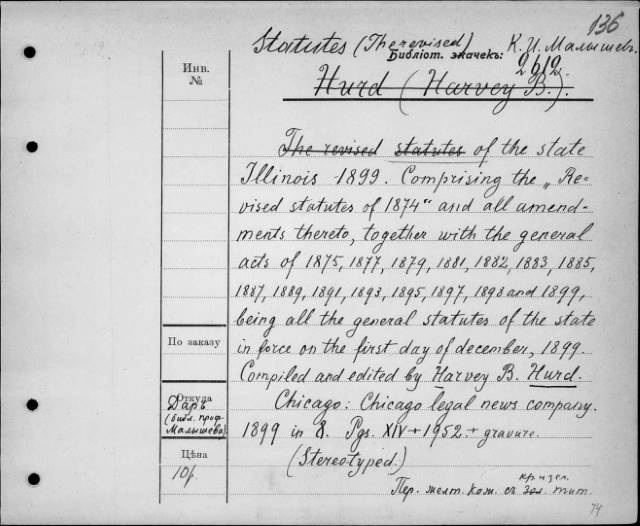 136
Statutes (The revised) К. И. Малышевъ.
Библіот. значекъ:
2612.
Hurd (Harvey B.).
Инв.
№
The revised statutes of the state
Illinois 1899. Comprising the „Re-
vised statutes of 1874“ and all amend-
ments thereto, together with the general
acts of 1875, 1877, 1879, 1881, 1882, 1883, 1885,
1887, 1889, 1891, 1893, 1895, 1897, 1898 and 1899,
being all the general statutes of the state
По заказу
in force on the first day of december, 1899.
Compiled and edited by Harvey B. Hurd.
Откуда
Даръ
(библ. проф.
Малышева)
Chicago: Chicago legal news company.
1899 in 8. Pgs. XIV + 1952 + gravure.
Цѣна
10р.
(Stereotyped.)
кр. и зел.
Пер. желт. кож. съ зол. тит.
74